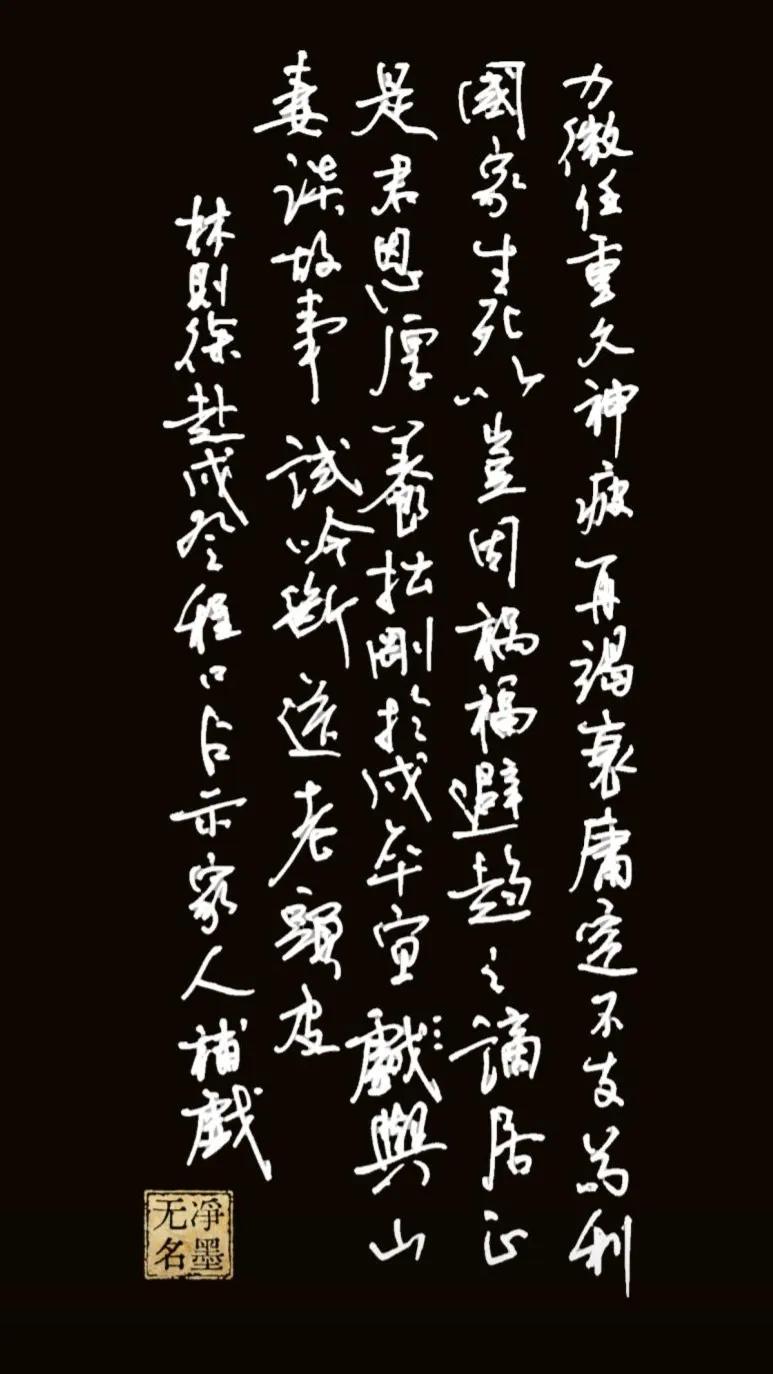 力微任重久神疲再竭衰庸定不支苟利
國家生死以豈因禍福避趨之謫居正
是君恩厚養拙剛於戍卒宜戲與山
妻談故事試吟斷送老頭皮
林則徐赴戍登程口占示家人補戲
净墨
无名